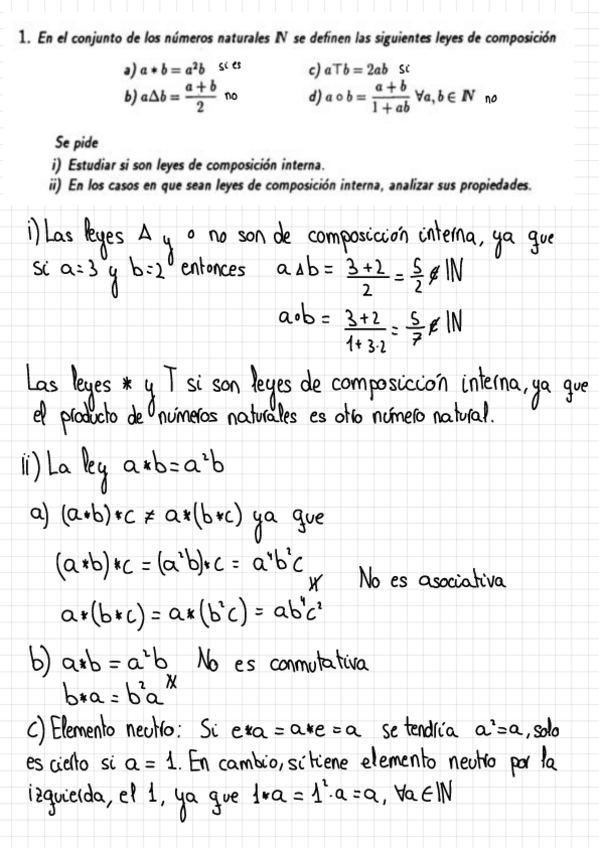 1. En el conjunto de los números naturales ℕ se definen las siguientes leyes de composición
a) a * b = a²b si es
c) a⊤b = 2ab si
b) aΔb = (a + b)/2 no
d) a ∘ b = (a + b)/(1 + ab) ∀a, b ∈ ℕ no
Se pide
i) Estudiar si son leyes de composición interna.
ii) En los casos en que sean leyes de composición interna, analizar sus propiedades.
i) Las leyes Δ y o no son de composicción interna, ya que
si a=3 y b=2 entonces a Δ b = (3+2)/2 = 5/2 ∉ ℕ
a∘b = (3+2)/(1+3·2) = 5/7 ∉ ℕ
Las leyes * y T si son leyes de composicción interna, ya que
el producto de números naturales es otro número natural.
ii) La ley a*b=a²b
a) (a*b)*c ≠ a*(b*c) ya que
(a*b)*c = (a²b)*c = a⁴b²c
No es asociativa
a*(b*c) = a*(b²c) = ab⁴c²
b) a*b = a²b No es conmutativa
b*a = b²a
c) Elemento neutro: Si e*a = a*e = a se tendría a²=a, solo
es cierto si a = 1. En cambio, si tiene elemento neutro por la
izquierda, el 1, ya que 1*a = 1²·a = a, ∀a∈ℕ